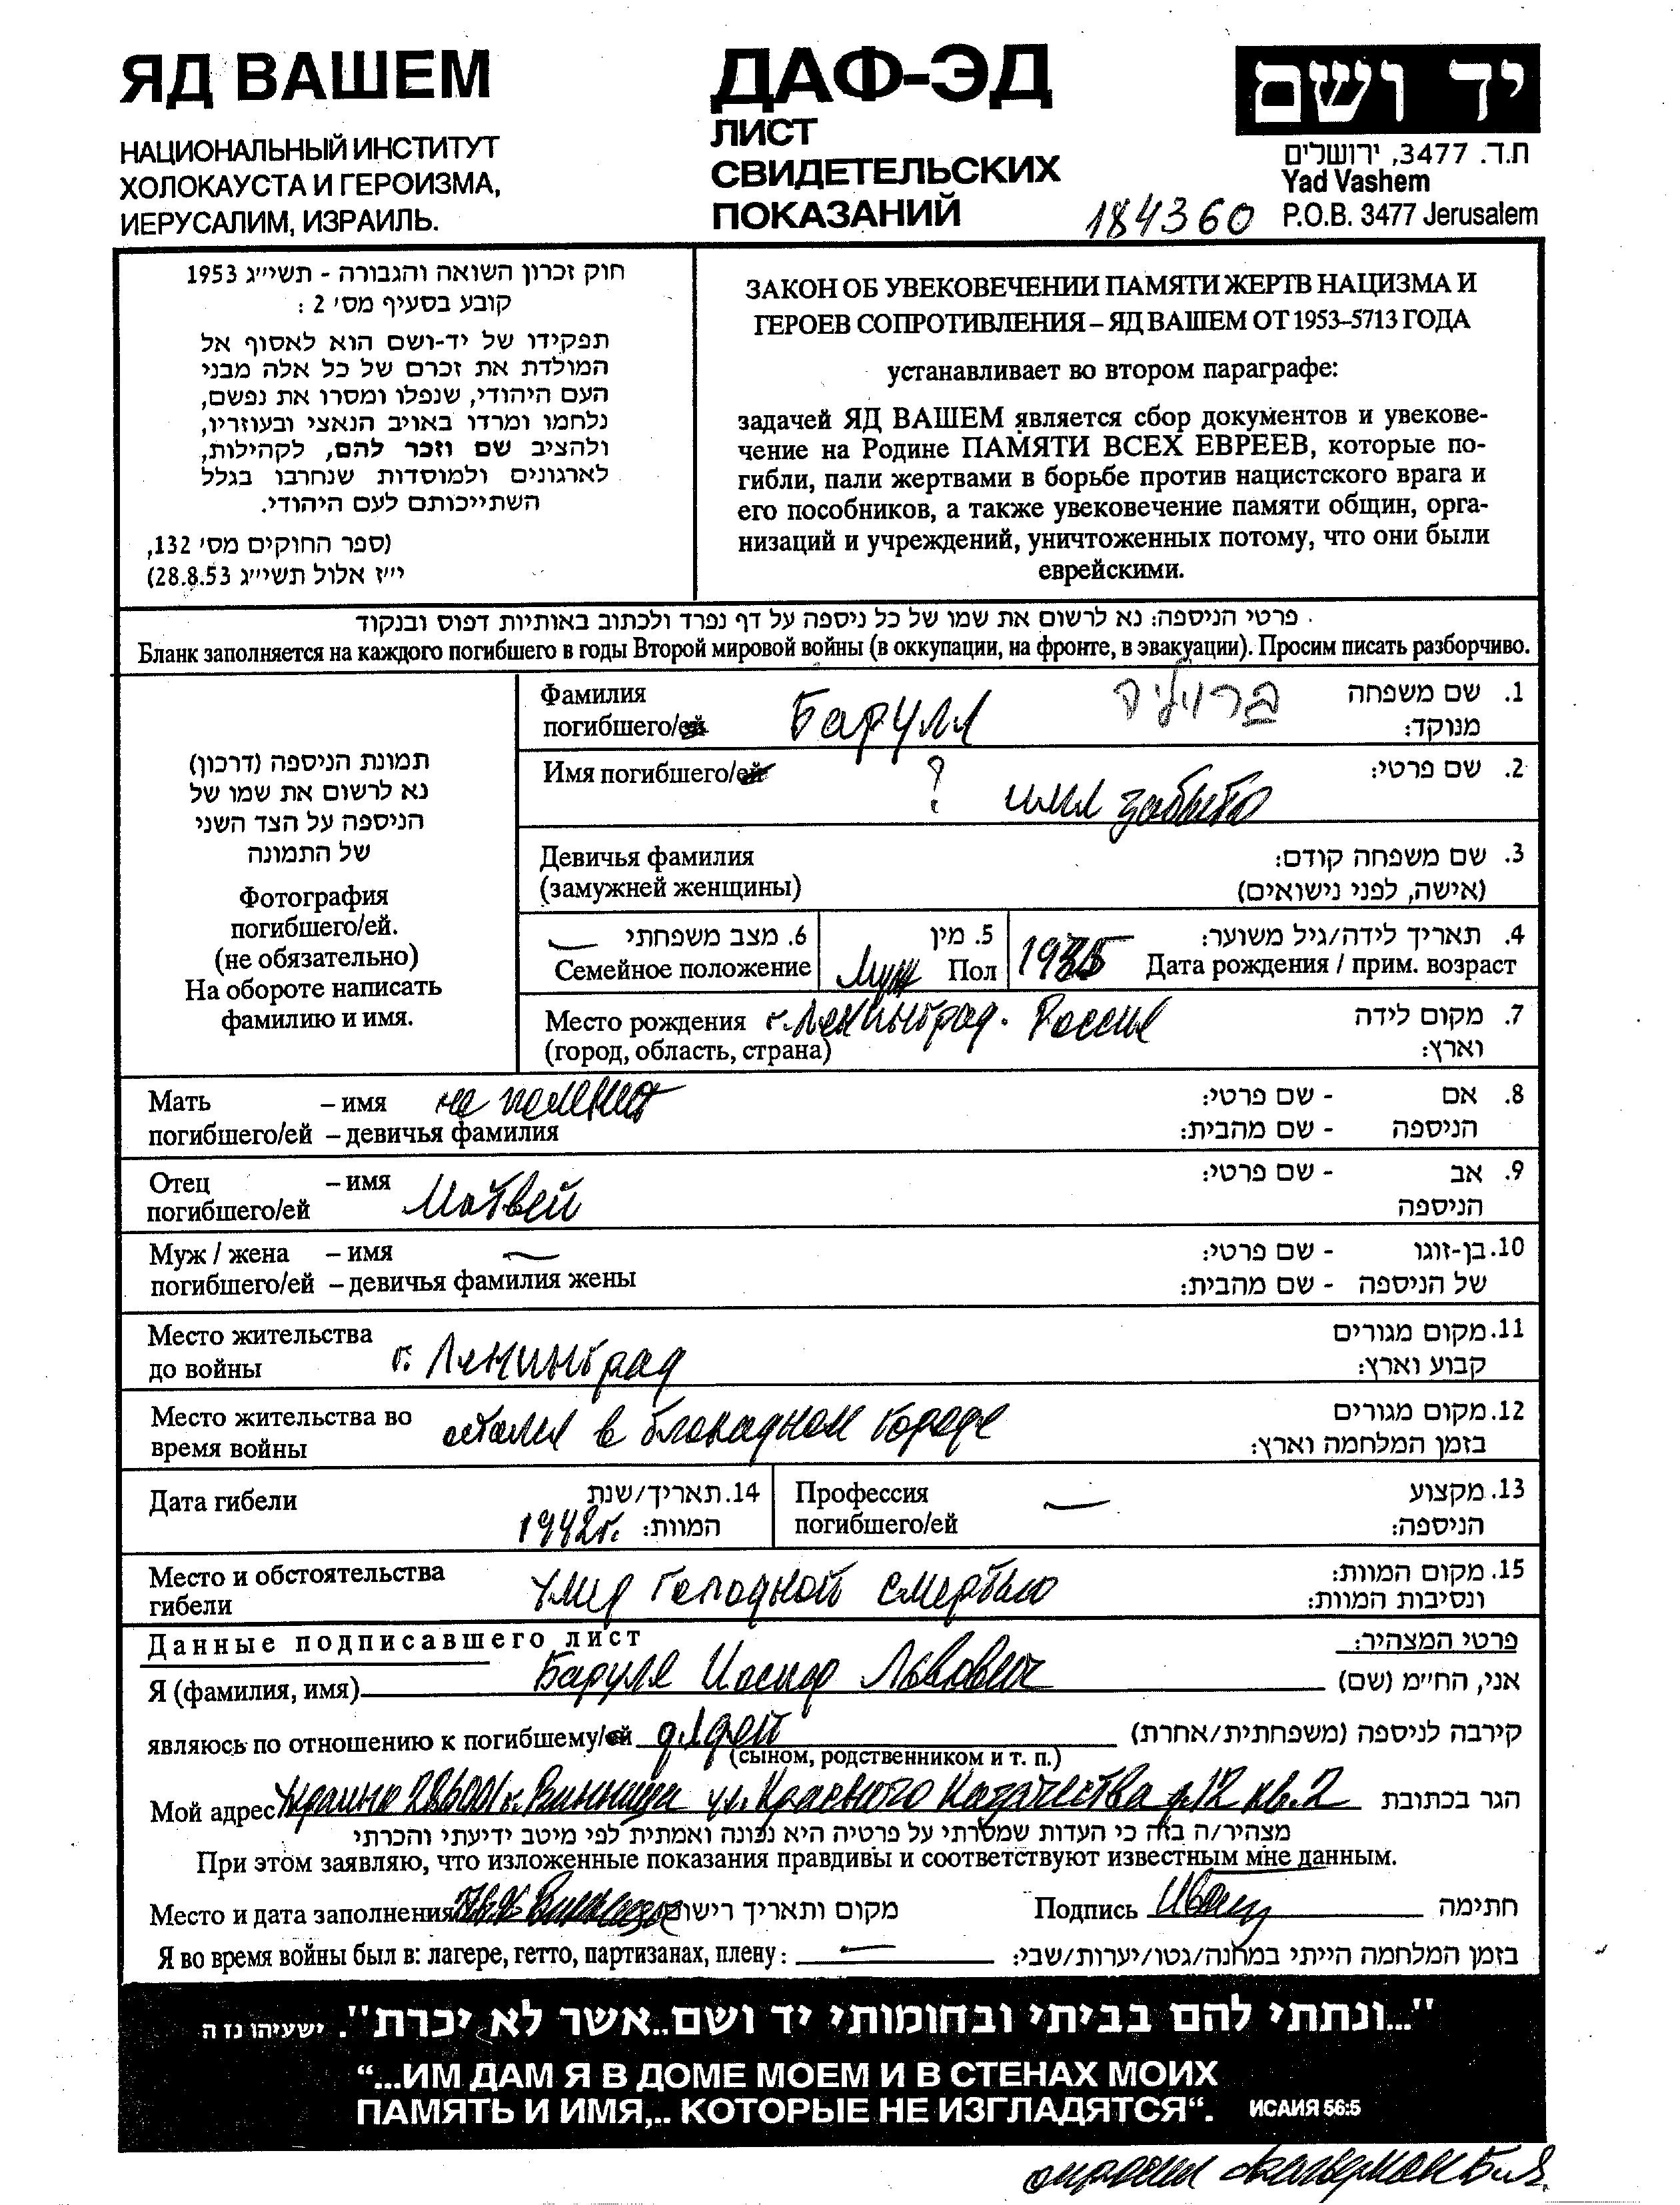 ЯД ВАШЕМ
НАЦИОНАЛЬНЫЙ ИНСТИТУТ
ХОЛОКАУСТА И ГЕРОИЗМА,
ИЕРУСАЛИМ, ИЗРАИЛЬ.
ДАФ-ЭД
ЛИСТ
СВИДЕТЕЛЬСКИХ
ПОКАЗАНИЙ
184360
יד ושם
ת.ד. 3477, ירושלים
Yad Vashem
P.O.B. 3477 Jerusalem
חוק זכרון השואה והגבורה - תשי״ג 1953
קובע בסעיף מס׳ 2 :
תפקידו של יד-ושם הוא לאסוף אל
המולדת את זכרם של כל אלה מבני
העם היהודי, שנפלו ומסרו את נפשם,
נלחמו ומרדו באויב הנאצי ובעוזריו,
ולהציב שם וזכר להם, לקהילות,
לארגונים ולמוסדות שנחרבו בגלל
השתייכותם לעם היהודי.
(ספר החוקים מס׳ 132,
י״ז אלול תשי״ג 28.8.53)
ЗАКОН ОБ УВЕКОВЕЧЕНИИ ПАМЯТИ ЖЕРТВ НАЦИЗМА И
ГЕРОЕВ СОПРОТИВЛЕНИЯ – ЯД ВАШЕМ ОТ 1953–5713 ГОДА
устанавливает во втором параграфе:
задачей ЯД ВАШЕМ является сбор документов и увекове-
чение на Родине ПАМЯТИ ВСЕХ ЕВРЕЕВ, которые по-
гибли, пали жертвами в борьбе против нацистского врага и
его пособников, а также увековечение памяти общин, орга-
низаций и учреждений, уничтоженных потому, что они были
еврейскими.
פרטי הניספה: נא לרשום את שמו של כל ניספה על דף נפרד ולכתוב באותיות דפוס ובנקוד .
Бланк заполняется на каждого погибшего в годы Второй мировой войны (в оккупации, на фронте, в эвакуации). Просим писать разборчиво.
תמונת הניספה (דרכון)
נא לרשום את שמו של
הניספה על הצד השני
של התמונה
Фотография
погибшего/ей.
(не обязательно)
На обороте написать
фамилию и имя.
Фамилия
погибшего/ей Баруля
1. שם משפחה
מנוקד:
Имя погибшего/ей ? имя забыто 2. שם פרטי:
Девичья фамилия
(замужней женщины)
3. שם משפחה קודם:
(אישה, לפני נישואים)
6. מצב משפחתי —
Семейное положение
5. מין
муж Пол
4. תאריך לידה/גיל משוער:
1935 Дата рождения / прим. возраст
Место рождения г. Ленинград. Россия
(город, область, страна)
7. מקום לידה
וארץ:
Мать – имя не помню
погибшего/ей – девичья фамилия
8. אם - שם פרטי:
הניספה - שם מהבית:
Отец – имя
погибшего/ей Матвей
9. אב - שם פרטי:
הניספה
Муж / жена – имя —
погибшего/ей – девичья фамилия жены
10. בן-זוגו - שם פרטי:
של הניספה - שם מהבית:
Место жительства
до войны г. Ленинград
11. מקום מגורים
קבוע וארץ:
Место жительства во
время войны остался в блокадном городе
12. מקום מגורים
בזמן המלחמה וארץ:
Дата гибели 14. תאריך/שנת
המוות: 1942г.
Профессия —
погибшего/ей
13. מקצוע
הניספה:
Место и обстоятельства
гибели умер голодной смертью
15. מקום המוות:
ונסיבות המוות:
Данные подписавшего лист פרטי המצהיר:
Я (фамилия, имя) Баруля Иосиф Львович אני, הח״מ (שם)
являюсь по отношению к погибшему/ей дядей קירבה לניספה (משפחתית/אחרת)
(сыном, родственником и т. п.)
Мой адрес Украина 286001 г. Винница ул. Красного Казачества д.12 кв.2 הגר בכתובת
מצהיר/ה בזה כי העדות שמסרתי על פרטיה היא נכונה ואמתית לפי מיטב ידיעתי והכרתי
При этом заявляю, что изложенные показания правдивы и соответствуют известным мне данным.
Место и дата заполнения Винница מקום ותאריך רישום Подпись חתימה
Я во время войны был в: лагере, гетто, партизанах, плену: — בזמן המלחמה הייתי במחנה/גטו/יערות/שבי:
"...ונתתי להם בביתי ובחומותי יד ושם..אשר לא יכרת". ישעיהו נז ה
“...ИМ ДАМ Я В ДОМЕ МОЕМ И В СТЕНАХ МОИХ
ПАМЯТЬ И ИМЯ,.. КОТОРЫЕ НЕ ИЗГЛАДЯТСЯ“. ИСАИЯ 56:5